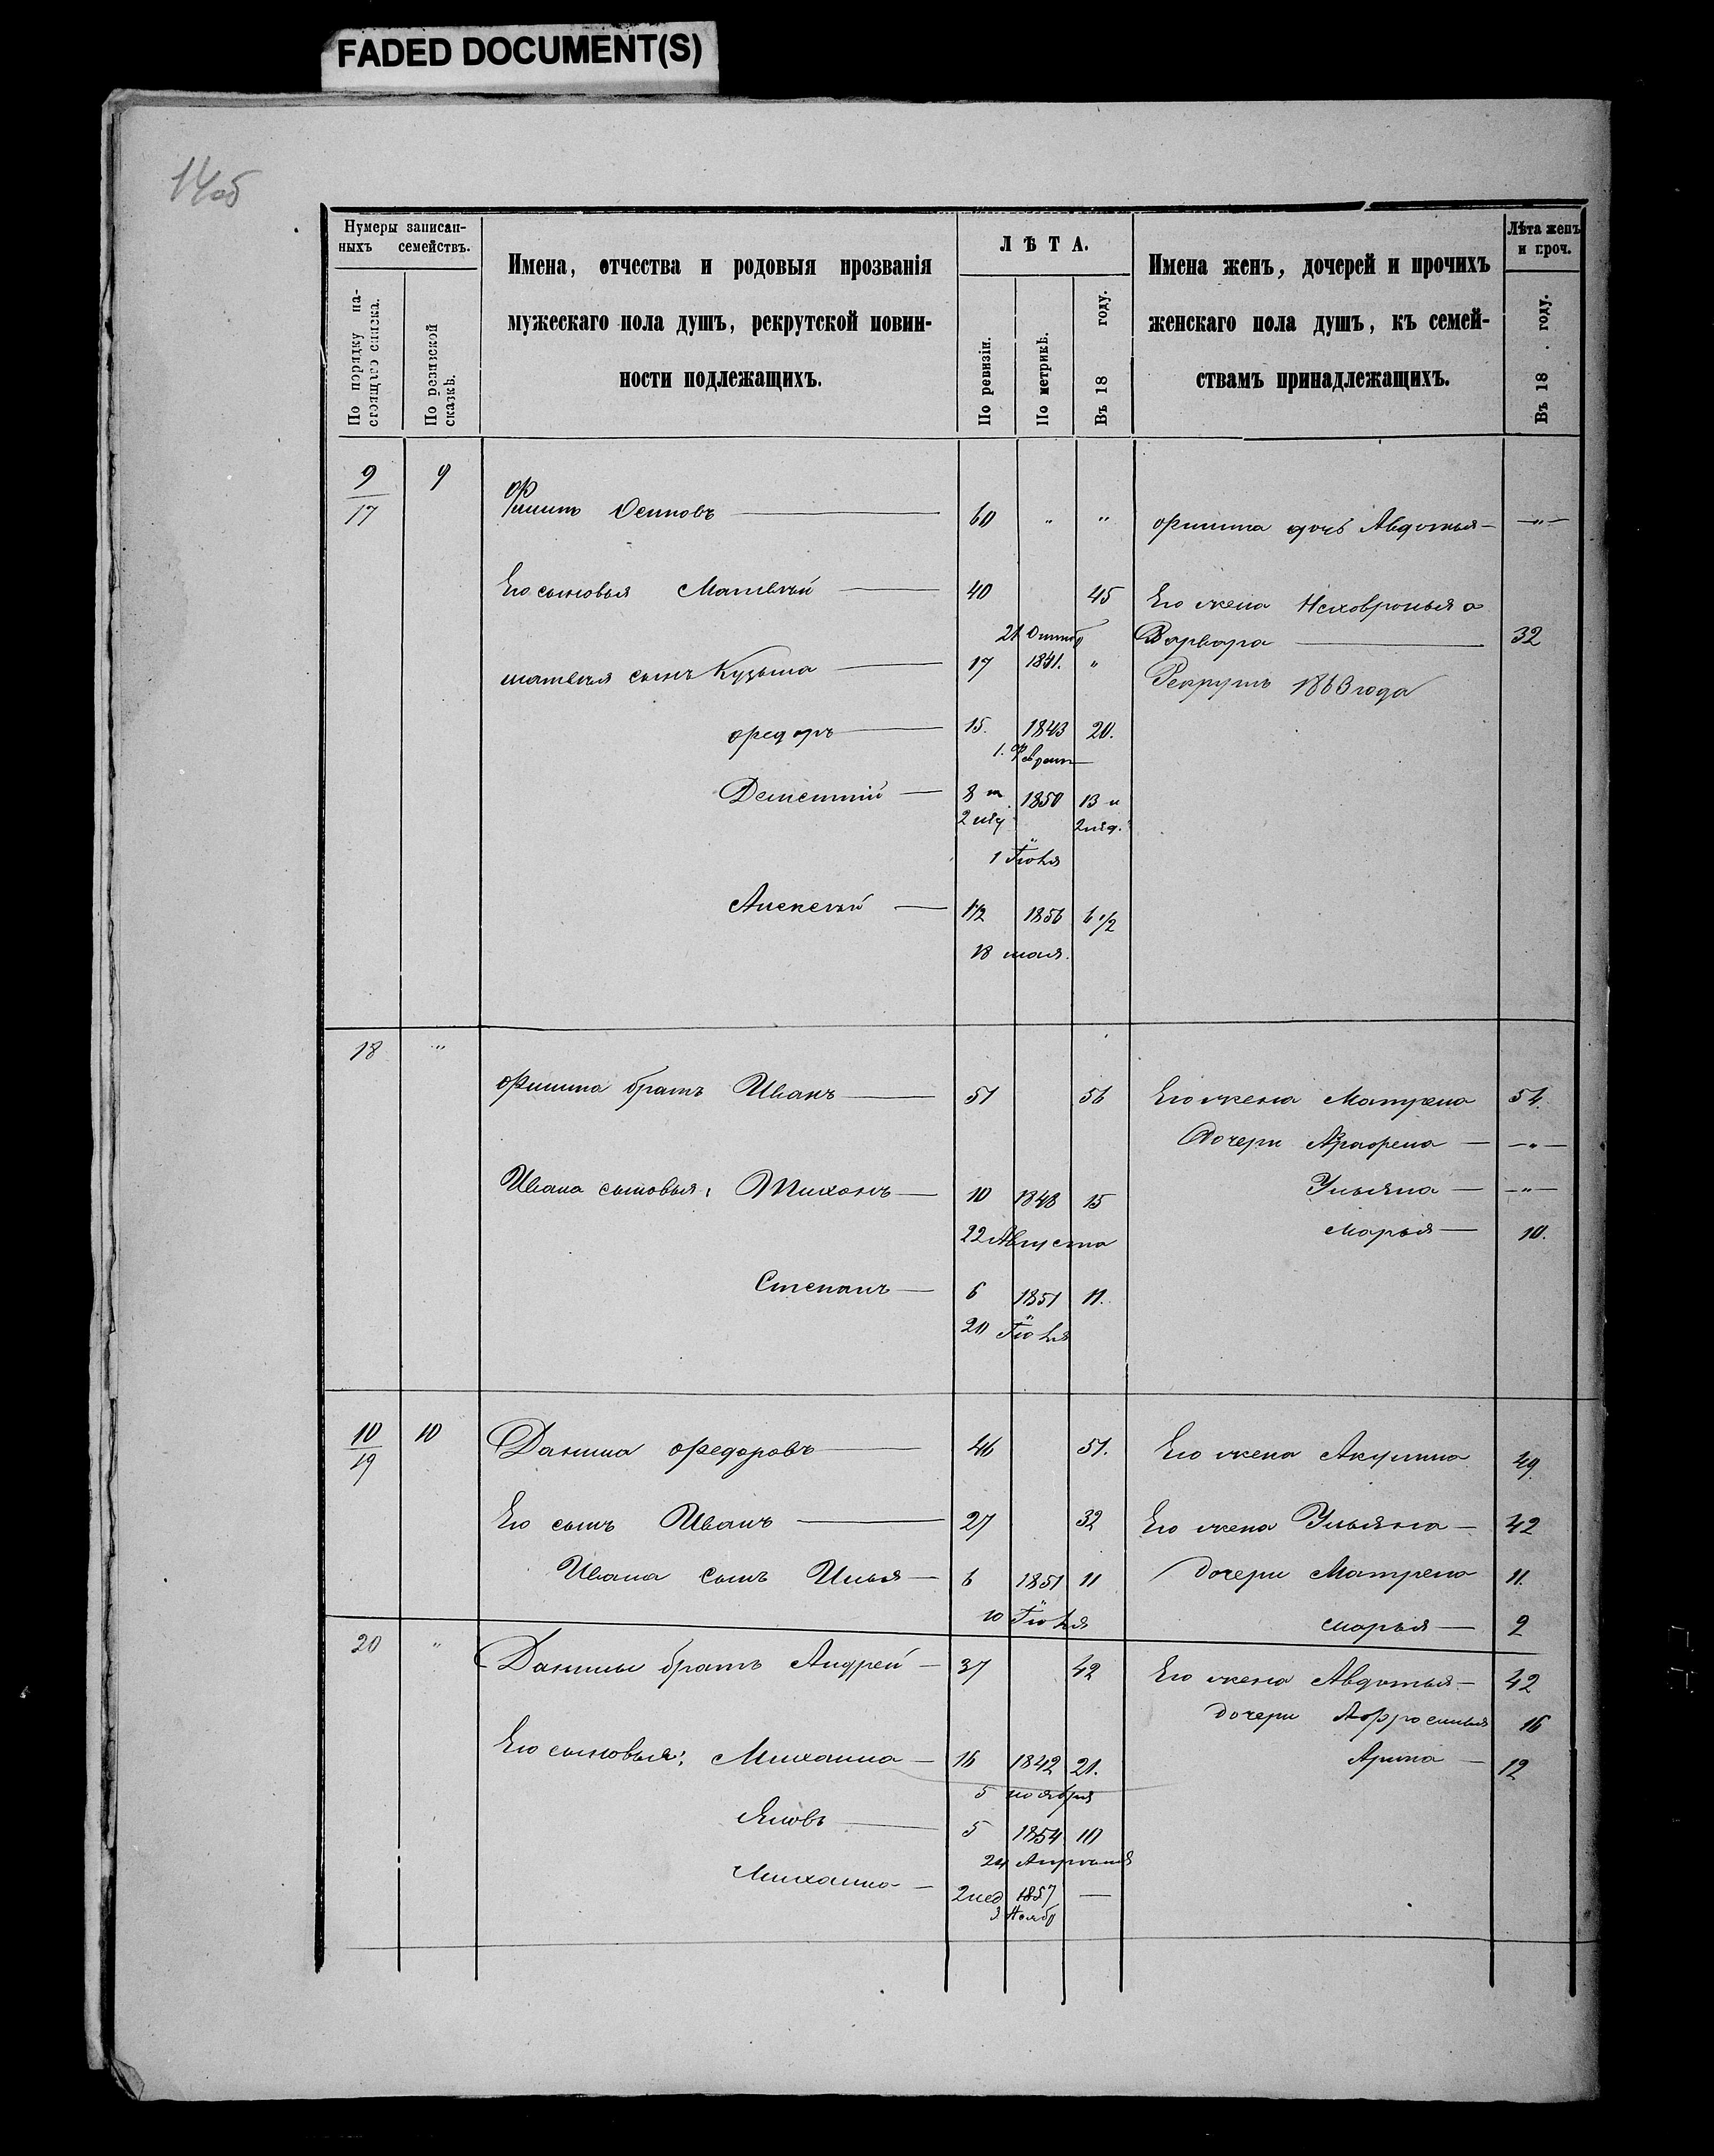 FADED DOCUMENT(S)
14об
Нумеры записан-
ныхъ семействъ.
По порядку на-
стоящаго списка.
По ревизской
сказкѣ.
Имена, отчества и родовыя прозванія
мужескаго пола душъ, рекрутской повин-
ности подлежащихъ.
ЛѢТА.
По ревизіи.
По метрикѣ.
Въ 18 году.
Имена женъ, дочерей и прочихъ
женскаго пола душъ, къ семей-
ствамъ принадлежащихъ.
Лѣта женъ
и проч.
Въ 18 . году.
9 9
17 Филипъ Осиповъ — 60 " " Филипа дочь Авдотья — — " —
Его сыновья Матвѣй — 40 45 Его жена
21 Варвара — 32
матвѣя сынъ Кузьма — 17 1841. " Рекрутъ 1863 года
Федоръ — 15. 1843 20.
1. Февраля
Дементій — 8 и 1850 13 и
2 нѣд. 2 нѣд.
1 Іюля
Алексѣй — 1 1/2 1856 6 1/2
18 мая.
18 "
Филипа братъ Иванъ — 51 56 Его жена Матрена 54.
Дочери Аграфена — — " —
Ивана сыновья: Тихонъ — 10 1848 15 Ульяна — — " —
22 Августа Марья — 10.
Степанъ — 6 1851 11.
20 Іюля
10 10 Данила Федоровъ — 46 51. Его жена Акулина 49
19
Его сынъ Иванъ — 27 32 Его жена Ульяна — 42
Ивана сынъ Илья — 6 1851 11 дочери Матрена 11.
10 Іюля Марья — 2
20 " Данилы братъ Андрей — 37 42 Его жена Авдотья — 42
дочери Афросинья 16
Его сыновья: Михаила — 16 1842 21. Арина — 12
5 ноября
Яковъ — 5 1854 10
24 Апрѣля
Михаила — 2 нед 1857 —
3 Ноябр